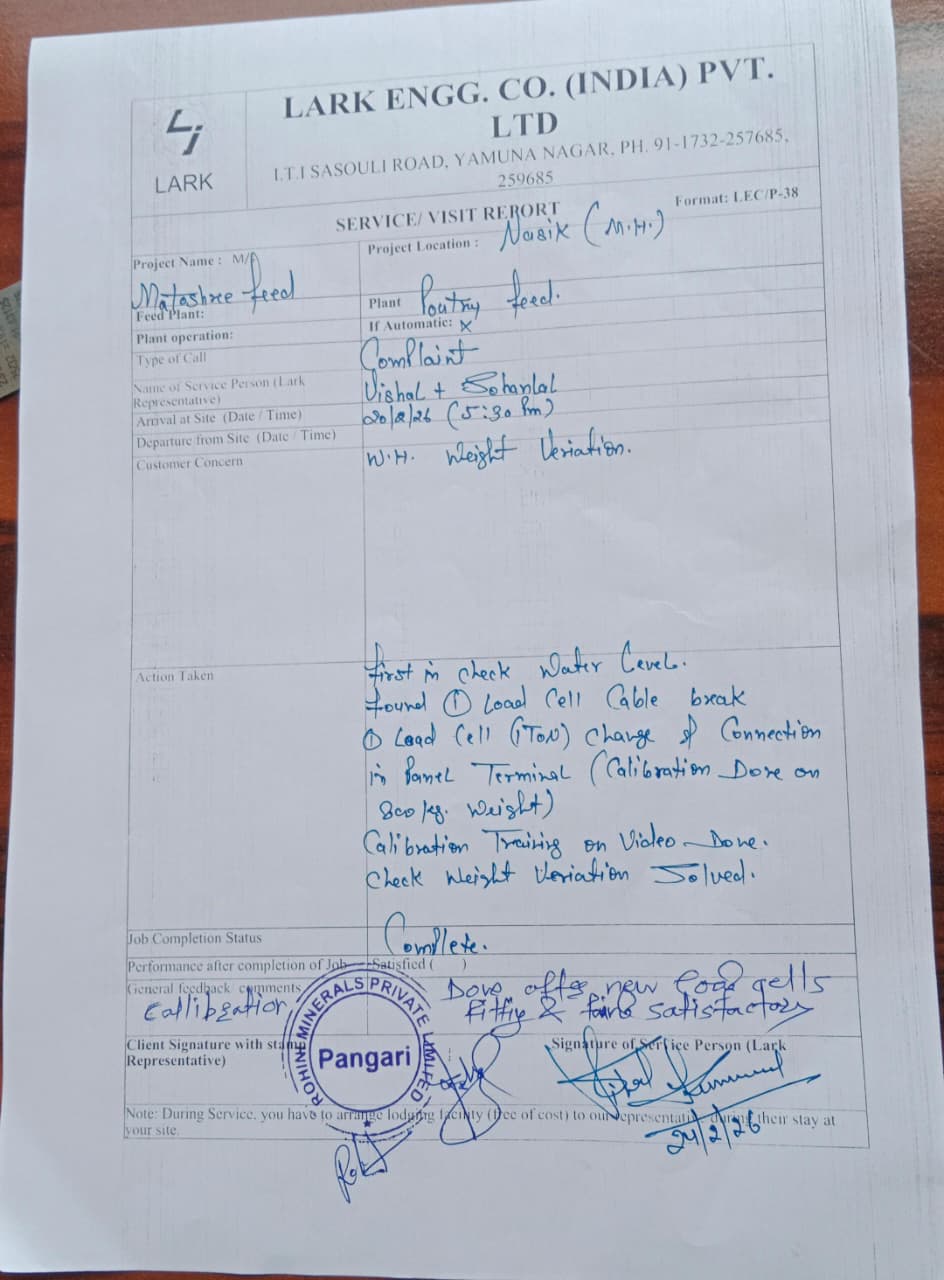 LARK
LARK ENGG. CO. (INDIA) PVT.
LTD
I.T.I SASOULI ROAD, YAMUNA NAGAR, PH. 91-1732-257685,
259685
SERVICE/ VISIT REPORT
Format: LEC/P-38
Project Name : M/
Matashree feed
Project Location : Nasik (M.H.)
Feed Plant:
Plant Poutry feed.
Plant operation:
If Automatic: X
Type of Call Complaint
Name of Service Person (Lark
Representative) Vishal + Sohanlal
Arrival at Site (Date / Time) 20/2/26 (5:30 Pm)
Departure from Site (Date / Time)
Customer Concern W.H. Weight Veriation.
Action Taken
First in check Water Level.
Found ① Load Cell Cable break
① Load Cell (1TON) Change & Connection
in Panel Terminal (Calibration Done on
800 kg. Weight)
Calibration Training on Video Done.
Check Weight Veriation Solved.
Job Completion Status Complete.
Performance after completion of Job Satisfied ( )
General feedback comments
Callibration Done after new load cells
Fitting & found satisfactory
ROHINE MINERALS PRIVATE LIMITED
Pangari
Client Signature with stamp
Representative)
Signature of Service Person (Lark
24/2/26
Note: During Service, you have to arrange lodging facility (free of cost) to our representative during their stay at
your site.